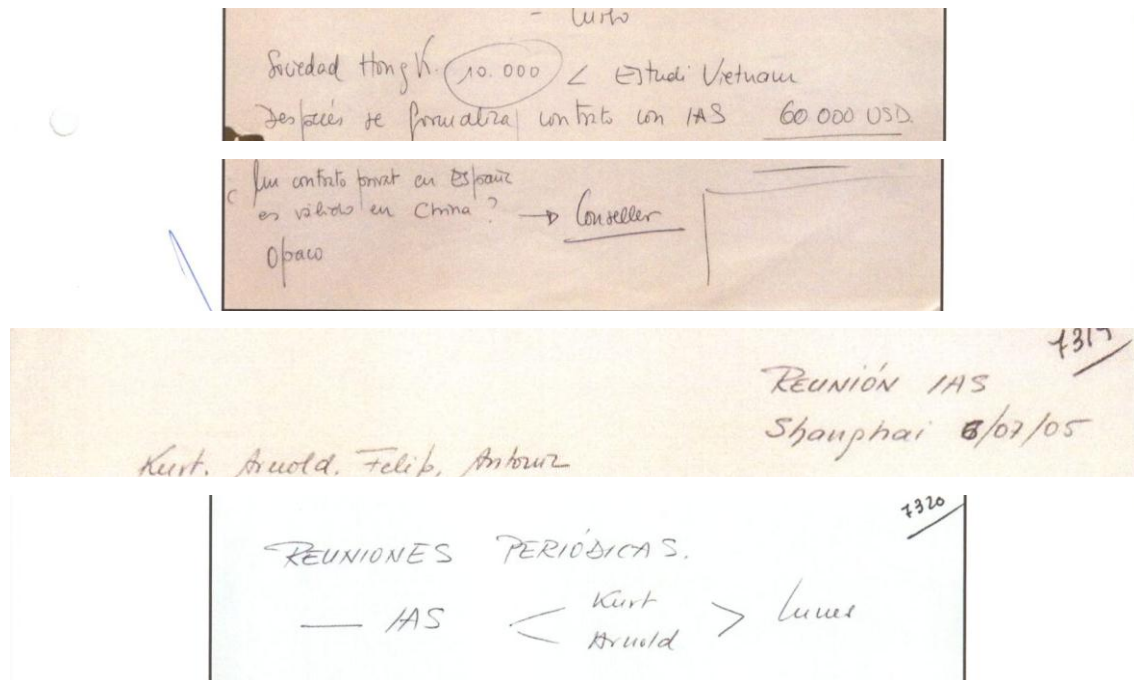 Sociedad Hong K. 10.000 < Estudi Vietnam
Después se formaliza contrato con IAS 60.000 USD.
contrato privat en España
es válido en China? → Conseller
Opaco
7319
REUNIÓN IAS
Shanghai 6/07/05
Kurt. Arnold. Felip, Antoni
7320
REUNIONES PERIÓDICAS.
— IAS < Kurt > Lunes
Arnold